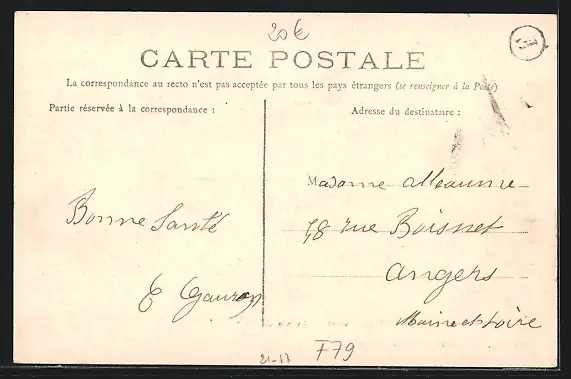 20€
CARTE POSTALE
La correspondance au recto n'est pas acceptée par tous les pays étrangers (se renseigner à la Poste)
Partie réservée à la correspondance :
Bonne Santé
E
Adresse du destinataire :
Madame Alleaume
78 rue Boisnet
Angers
Maine et Loire
21-17
F79